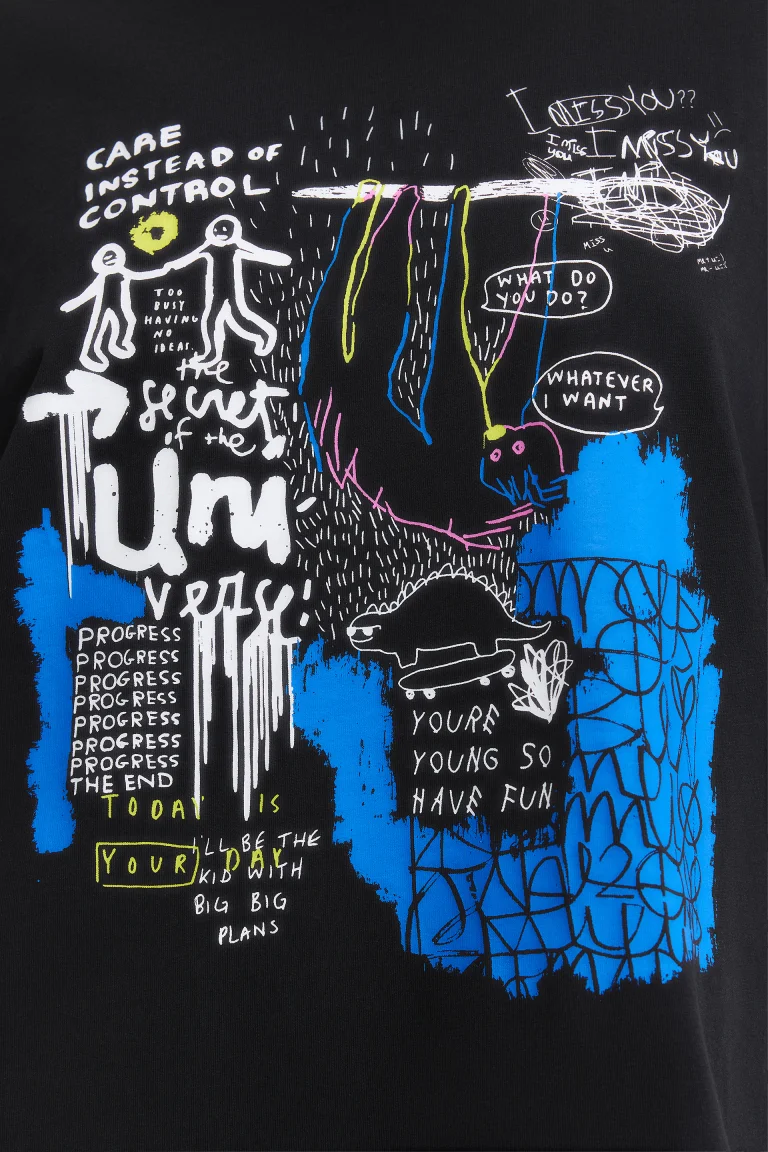 CARE
INSTEAD OF
CONTROL
TOO
BUSY
HAVING
NO
IDEAS.
the
secret
of the
Uni
verse!
PROGRESS
PROGRESS
PROGRESS
PROGRESS
PROGRESS
PROGRESS
PROGRESS
THE END
TODAY IS
YOUR DAY
I'LL BE THE
KID WITH
BIG BIG
PLANS
I MISS YOU??
I MISS YOU
I MISS
YOU
MISS
U
WHAT DO
YOU DO?
WHATEVER
I WANT
YOURE
YOUNG SO
HAVE FUN